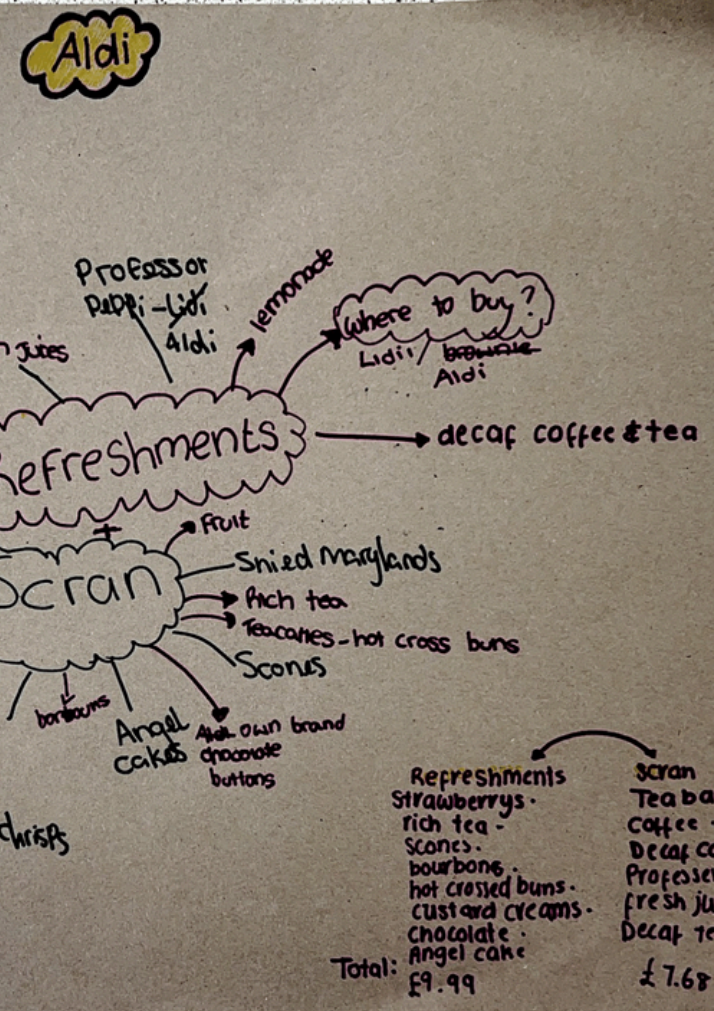 Aldi
Professor
Peppi - Lidi
Aldi
lemonade
Where to buy?
Lidi / brownie
Aldi
Juices
Refreshments
decaf coffee & tea
+
Scran
Fruit
Snied Marylands
Rich tea
Teacakes - hot cross buns
Scones
bourbouns
Angel
cakes
Aldi own brand
chocolate
buttons
Chrisps
Refreshments
Strawberrys.
rich tea -
scones.
bourbons.
hot crossed buns.
custard creams.
Chocolate.
Angel cake
Total:
£9.99
Scran
Tea ba
Coffee
Decaf co
Professer
fresh ju
Decaf te
£7.68